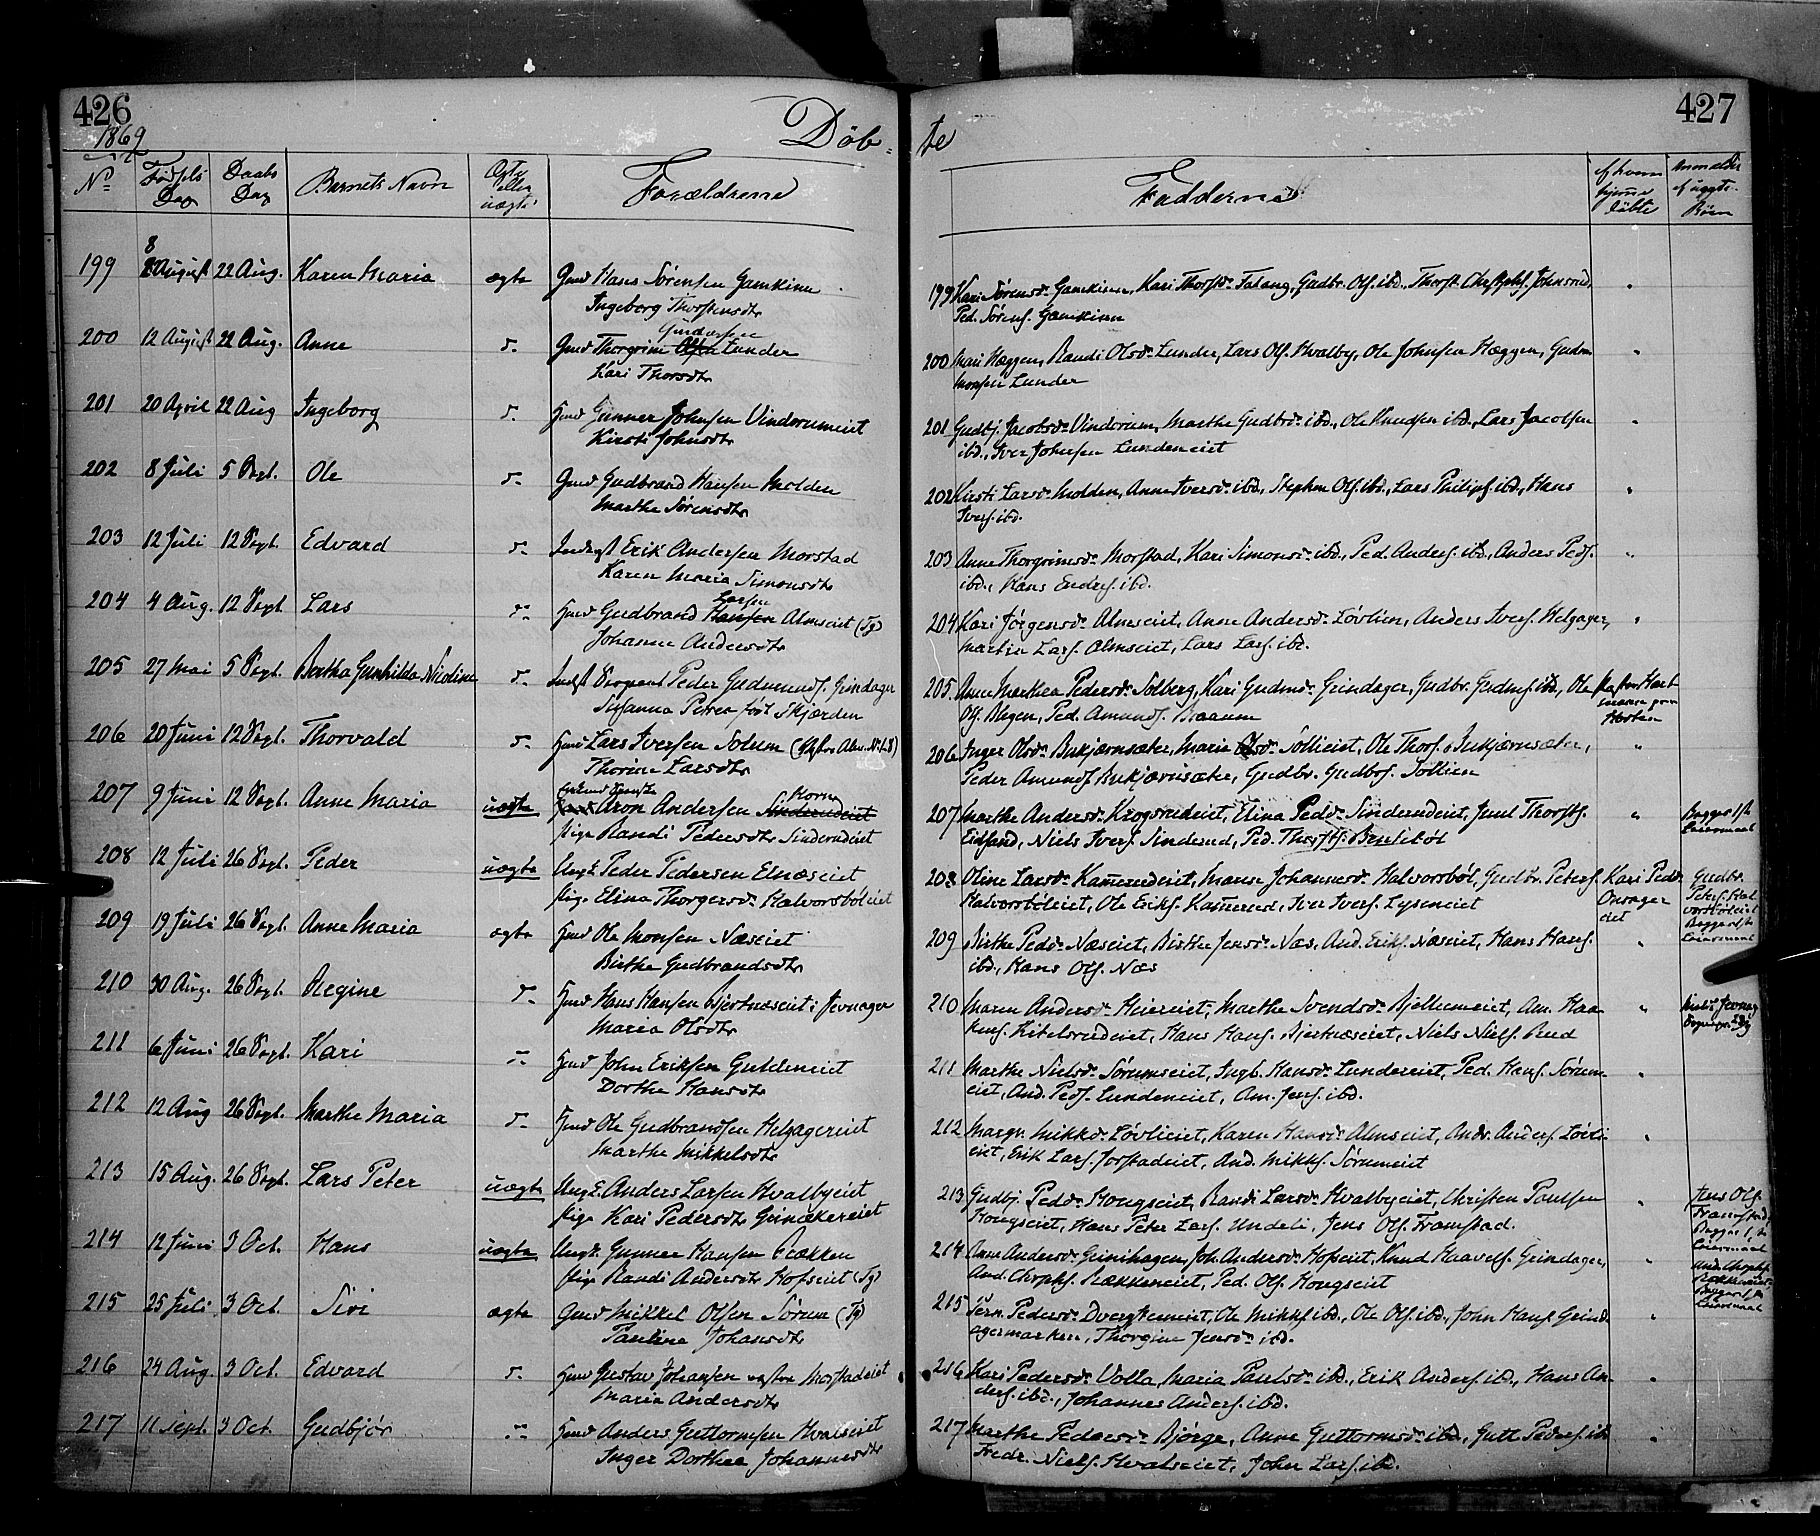 426
1869
Døb-
No
Fødsels Dag
Daabs Dag
Barnets Navn
Ægte eller uægte
Forældrene
199 8 August 22 Aug. Karen Maria ægte Gmd Hans Sørensen Gamkinn
Ingeborg Thorstensdtr
200 12 August 22 Aug. Anne d- Gmd Thorgrim Gudmsen Lunder
Kari Thorsdtr
201 20 April 22 Aug Ingeborg d- Hmd Gunner Johnsen Vindorumeiet
Kirsti Johnsdtr
202 8 Juli 5 Sept. Ole d- Gmd Gudbrand Hansen Molden
Marthe Sørensdtr
203 12 Juli 12 Sept. Edvard d- Inderst Erik Andersen Morstad
Karen Maria Simonsdtr
204 4 Aug. 12 Sept. Lars d- Hmd Gudbrand Larsen Hansen Almseiet (Jg)
Johanne Andersdtr
205 27 Mai 5 Sept. Bertha Gunhilda Nicoline d- Indst Sergeant Peder Gudmunds. Grindager
Susanna Petrea født Skjærden
206 20 Juni 12 Sept. Thorvald d- Hmd Lars Iversen Solum
Thorine Larsdtr
207 9 Juni 12 Sept. Anne Maria uægte Aron Andersen Horn Sinderudeiet
Pige Randi Pedersdtr Sinderudeiet
208 12 Juli 26 Sept. Peder uægte Ungk. Peder Pedersen Elnæseiet
Pige Elina Thorgersdr. Halvorsböleiet
209 19 Juli 26 Sept. Anne Maria ægte Hmd Ole Monsen Næseiet
Birthe Gudbrandsdtr
210 30 Aug. 26 Sept. Regine d- Hmd Hans Hansen Bjertnæseiet i Jevnager
Maria Olsdtr
211 6 Juni 26 Sept. Kari d- Hmd John Eriksen Guldeneiet
Dorthe Hansdtr
212 12 Aug 26 Sept. Marthe Maria d- Hmd Ole Gudbrandsen Helgagereiet
Marthe Mikkelsdtr
213 15 Aug. 26 Sept. Lars Peter uægte Ungk. Anders Larsen Hvalbyeiet
Pige Kari Pedersdtr Grinakereiet
214 12 Juni 3 Oct. Hans uægte Ungk. Gunner Hansen Rækken
Pige Randi Andersdtr Hofseiet (Jg)
215 25 Juli 3 Oct. Siri ægte Gmd Mikkel Olsen Sørum (Jg)
Pauline Johansdtr
216 24 Aug. 3 Oct. Edvard d- Hmd Gustav Johansen vestre Morstadeiet
Maria Andersdtr
217 11 Sept. 3 Oct. Gudbjør d- Hmd Anders Guttormsen Hvalseiet
Inger Dorthea Johannesdtr
427
te
Fadderne
Af hvem hjemme døbte
Anmelder af uægte Børn
199 Kari Sørensdr. Gamkinn, Kari Thorstdr. Falang, Gudbr. Ols. ibd., Thorst. Christophs. Johnsrud,
Ped. Sørens. Gamkinn
200 Mari Hæggen, Randi Olsdr. Lunder, Lars Ols. Hvalby, Ole Johnsen Hæggen, Gudm
Monsen Lunder
201 Gudbj. Jacobsdr. Vindorum, Marthe Gudbrdr. ibd., Ole Knudsen ibd., Lars Jacobsen
ibd., Iver Johnsen Lundeneiet
202 Kirsti Larsdr. Molden, Anne Iversdr. ibd., Stephen Ols. ibd., Lars Philips. ibd., Hans
Ivers. ibd.
203 Anne Thorgrimsdr. Morstad, Kari Simonsdr. ibd., Ped. Anders. ibd., Anders Peds.
ibd., Hans Enders. ibd.
204 Kari Jørgensdr. Almseiet, Anne Andersdr. Løvlien, Anders Ivers. Helgager,
Martin Lars. Almseiet, Lars Lars. ibd.
205. Anne Marthea Pedersdr. Solberg, Kari Gudmdr. Grindager, Gudbr. Gudms. ibd., Ole
Ols. Ped. Amunds. Braaum
206 Inger Olsdr. Bukjærnsæter, Maria Olsdr. Sollieiet, Ole Thors. Bukjærnsæter,
Peder Amunds. Bukjærnsæter, Gudbr. Gudbrs. Sollien
207 Marthe Andersdr. Krogsrudeiet, Elina Pedsdr. Sinderudeiet, Juul Thorsts.
Eidsand, Niels Ivers. Sinderud, Ped. Thorsts.
208 Oline Larsdr. Kamerudeiet, Maren Johannesdr. Halvorsböl, Gudbr. Peters. Kari Pedr. Gudbr.
Halvorsböleiet, Ole Eriks. Kamerud, Iver Ivers. Lyseneiet Onsager eiet
209 Birthe Pedsdr. Næseiet, Birthe Jensdr. Næs, And. Eriks. Næseiet, Hans Hans.
ibd., Hans Ols. Næs
210 Maren Andersdr. Heiereiet, Marthe Svendsdr. Bjellumeiet, Am. Haa-
kens. Kitelsrudeiet, Hans Hans. Bjertnæseiet, Niels Niels. Rud
211 Marthe Nielsdr. Sørumseiet, Ingb. Hansdr. Lundeneiet, Ped. Hans. Sørum-
eiet, And. Peds. Lundeneiet, Am. Jens. ibd.
212 Margr. Mikksdr. Løvlieiet, Karen Hansdr. Almseiet, Andr. Anders. Løvli-
eiet, Erik Lars. Jorstadeiet, And. Mikks. Sørumeiet
213 Gudbj. Pedsdr. Hougseiet, Randi Larsdr. Hvalbyeiet, Christen Paulsen
Hougseiet, Hans Peter Lars. Undeli, Jens Ols. Framstad.
214 Anne Andersdr. Grinihagen, Joh. Andersdr. Hofseiet, Knud Haavels. Grindager,
And. Chrophs. Rækkeneiet, Ped. Ols. Hougseiet
215 Pedersdr. Ole Mikks. ibd., Ole Ols. ibd., John Hans. Grind-
agermarken, Thorgine Jensdr. ibd.
216 Kari Pedersdr. Volla, Maria Paulsdr. ibd., Erik Anders. ibd., Hans An-
ders. ibd., Johannes Anders. ibd.
217 Marthe Pedersdr. Bjørge, Anne Guttormsdr. ibd., Gutt. Peders. ibd
Fredr. Niels. Hvalseiet, John Lars. ibd.